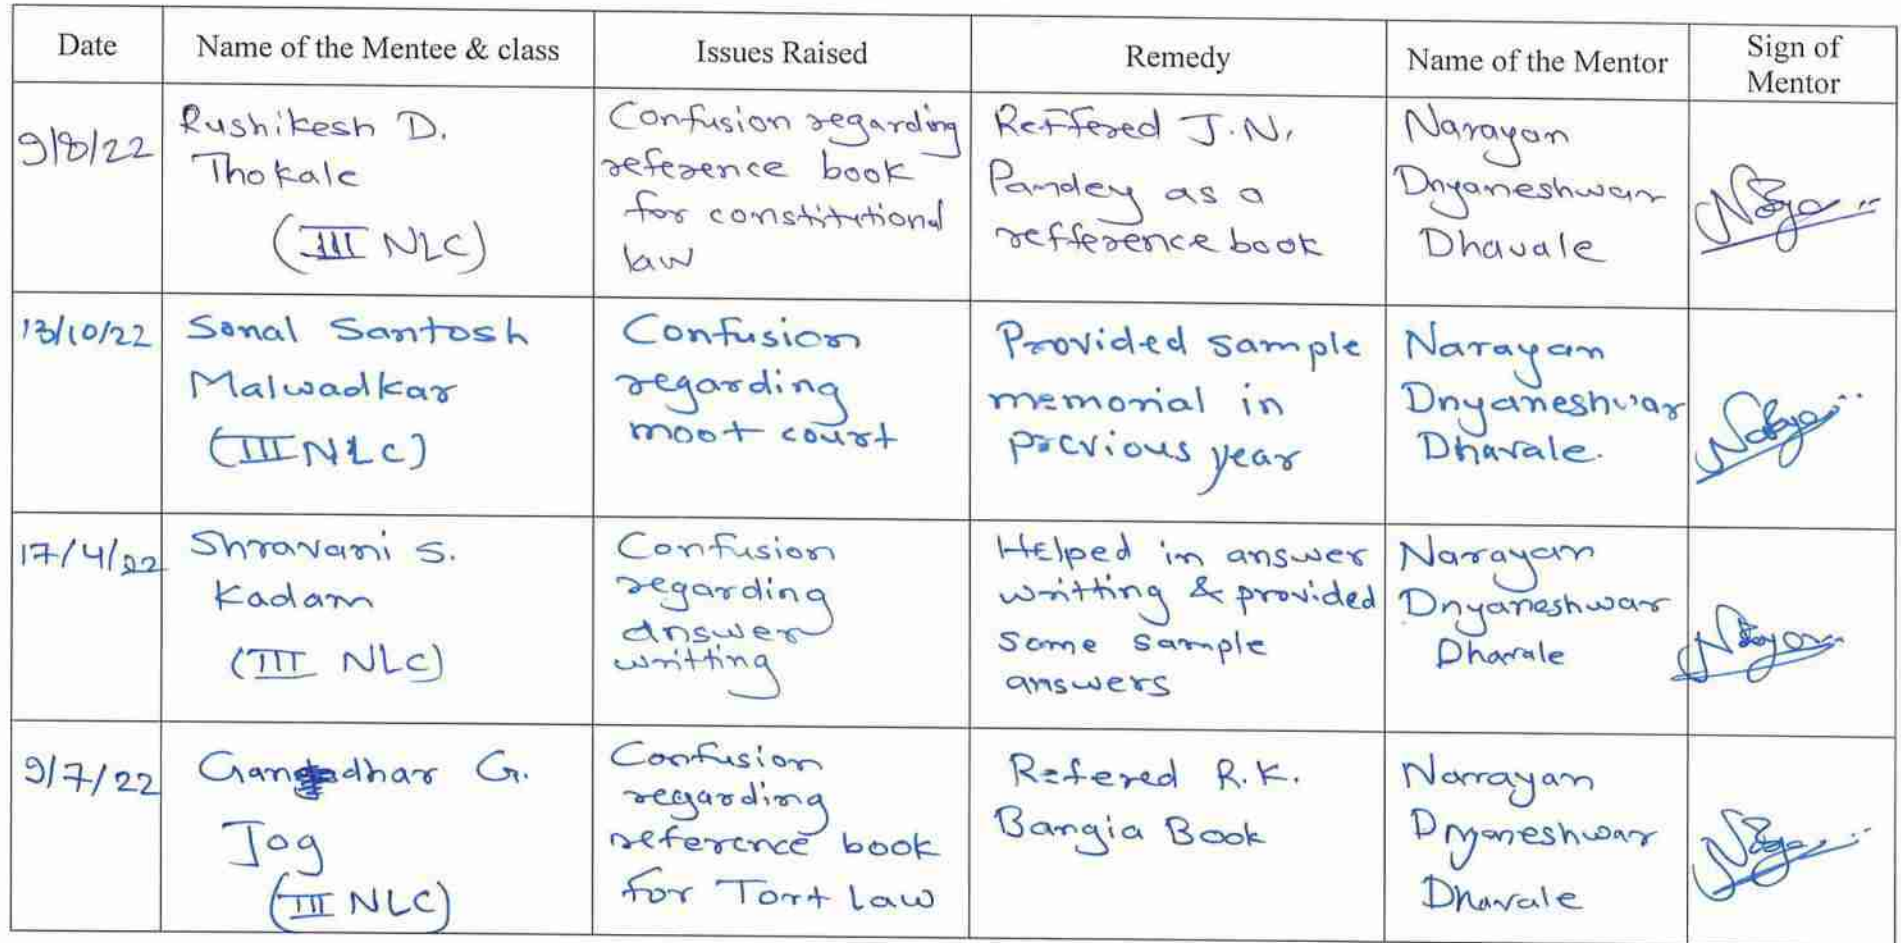 Date Name of the Mentee & class Issues Raised Remedy Name of the Mentor Sign of
Mentor
9/8/22
Rushikesh D.
Thokale
(III NLC)
Confusion regarding
reference book
for constitutional
law
Reffered J.N.
Pandey as a
refference book
Narayan
Dnyaneshwar
Dhavale
13/10/22
Sonal Santosh
Malwadkar
(III NLC)
Confusion
regarding
moot court
Provided sample
memorial in
previous year
Narayan
Dnyaneshwar
Dhavale.
17/4/22
Shravani S.
Kadam
(III NLC)
Confusion
regarding
answer
writting
Helped in answer
writting & provided
some sample
answers
Narayan
Dnyaneshwar
Dhavale
9/7/22
Gangadhar G.
Jog
(III NLC)
Confusion
regarding
reference book
for Tort Law
Refered R.K.
Bangia Book
Narayan
Dnyaneshwar
Dhavale